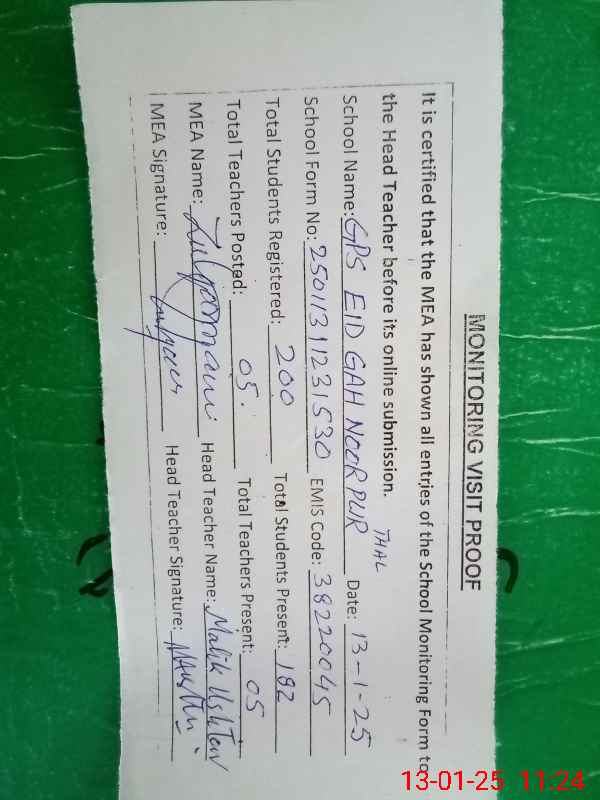 MONITORING VISIT PROOF
It is certified that the MEA has shown all entries of the School Monitoring Form to
the Head Teacher before its online submission.
THAL
School Name: GPS EID GAH NOORPUR Date: 13-1-25
School Form No: 25011311231530 EMIS Code: 38220045
Total Students Registered: 200 Total Students Present: 192
Total Teachers Posted: 05. Total Teachers Present: 05
MEA Name: Head Teacher Name: Malik
MEA Signature: Head Teacher Signature:
13-01-25 11:24